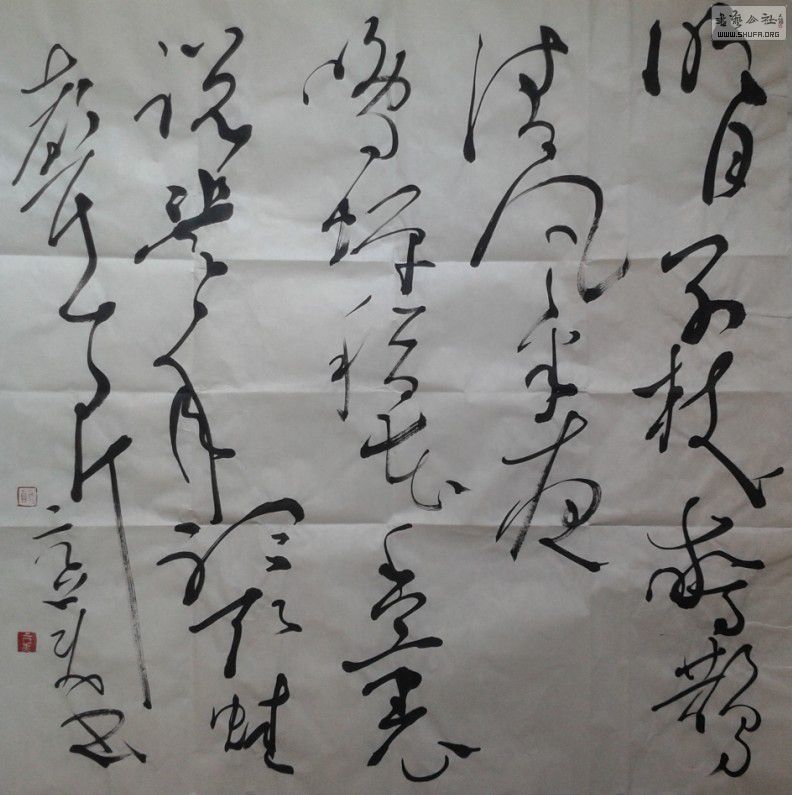 明月别枝惊鹊
清风半夜
鸣蝉稻花香里
说丰年听取蛙
声一片
书
书藝公社
WWW.SHUFA.ORG